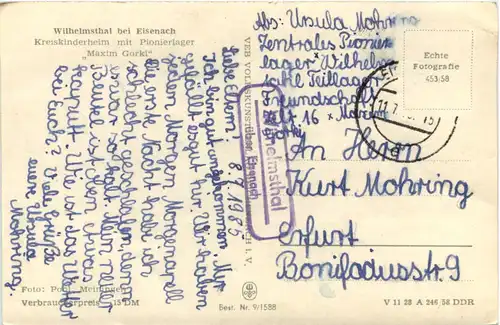 Wilhelmsthal bei Eisenach
Kreiskinderheim mit Pionierlager
„Maxim Gorki“
8.7.1985
Liebe Eltern!
Ich bin gut angekommen. Mir
gefällt es gut hir. Wir haben
jeden Morgen Morgenapell
die erste Nacht habe ich
schlecht geschlafen, denn
es war so kalt. Nur der
Beutel ist den etwas
kaputt. Wie ist das Wetter
bei Euch? Viele Grüße
eure Ursula
Mohring.
Foto: Meiningen
Verbraucherpreis 15 DM
Best. Nr. 9/1588
VEB VOLKSKUNST REICHENBACH I. V.
Wilhelmsthal
über Eisenach
Abs: Ursula Mohring
Zentrales Pionier
lager Wilhelm
sthl Teillager
Freundschaft
Zelt 16 Maxim
Gorki
Echte
Fotografie
453/58
An Herrn
Kurt Mohring
Erfurt
Bonifaciusstr. 9
V 11 28 A 246/58 DDR